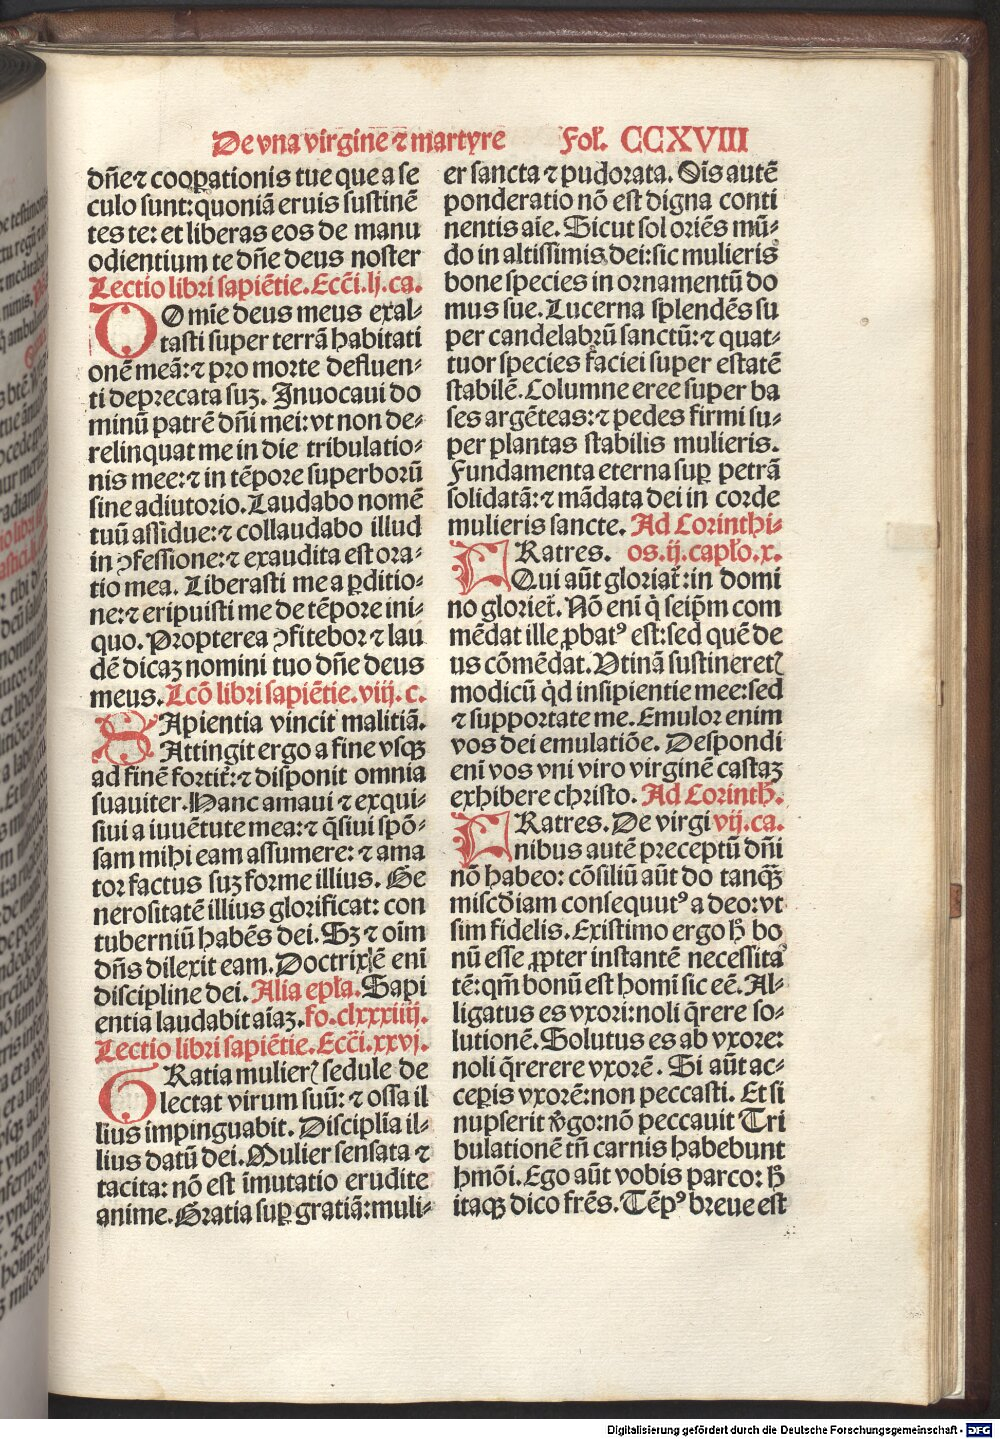 De vna virgine ⁊ martyre Fol. CCXVIII
dn̄e ⁊ coopationis tue que a se
culo sunt: quoniā eruis sustinē
tes te: et liberas eos de manu
odientium te dn̄e deus noster
Lectio libri sapiētie. Ecc̄i. lj. ca.
DOmīe deus meus exal-
tasti super terrā habitati
onē meā: ⁊ pro morte defluen-
ti deprecata suꝫ. Inuocaui do
minū patrē dn̄i mei: vt non de-
relinquat me in die tribulatio-
nis mee: ⁊ in tēpore superborū
sine adiutorio. Laudabo nomē
tuū assidue: ⁊ collaudabo illud
in ꝯfessione: ⁊ exaudita est ora-
tio mea. Liberasti me a ꝑditio-
ne: ⁊ eripuisti me de tēpore ini-
quo. Propterea ꝯfitebor ⁊ lau
dē dicaꝫ nomini tuo dn̄e deus
meus. Lcō libri sapiētie. viij. c.
SApientia vincit malitiā.
Attingit ergo a fine vsqꝫ
ad finē fortit̄: ⁊ disponit omnia
suauiter. Hanc amaui ⁊ exqui-
siui a iuuētute mea: ⁊ q̄siui spō-
sam mihi eam assumere: ⁊ ama
tor factus suꝫ forme illius. Ge
nerositatē illius glorificat: con
tuberniū habēs dei. Sꝫ ⁊ oīm
dn̄s dilexit eam. Doctrix ē enī
discipline dei. Alia epl̄a. Sapi
entia laudabit aīaꝫ. fo. clxxxiiij.
Lectio libri sapiētie. Ecc̄i. xxvj.
GRatia mulier̄ sedule de
lectat virum suū: ⁊ ossa il
lius impinguabit. Disciplīa il-
lius datū dei. Mulier sensata ⁊
tacita: nō est īmutatio erudite
anime. Gratia suꝑ gratiā: muli-
er sancta ⁊ pudorata. Oīs autē
ponderatio nō est digna conti
nentis aīe. Sicut sol oriēs mū-
do in altissimis dei: sic mulieris
bone species in ornamentū do
mus sue. Lucerna splendēs su
per candelabrū sanctū: ⁊ quat-
tuor species faciei super estatē
stabilē. Columne eree super ba
ses argēteas: ⁊ pedes firmi su-
per plantas stabilis mulieris.
Fundamenta eterna suꝑ petrā
solidatā: ⁊ mādata dei in corde
mulieris sancte. Ad Corinthi-
FRatres. os. ij. capl̄o. x.
Qui aūt gloriat̄: in domi
no gloriet̄. Nō enī q̄ seip̄m com
mēdat ille ꝓbatꝰ est: sed quē de
us cōmēdat. Vtinā sustineretꝭ
modicū q̄d insipientie mee: sed
⁊ supportate me. Emulor enim
vos dei emulatiōe. Despondi
enī vos vni viro virginē castaꝫ
exhibere christo. Ad Corinth̄.
FRatres. De virgi vij. ca.
nibus autē preceptū dn̄i
nō habeo: cōsiliū aūt do tanqꝫ̄
misc̄diam consequutꝰ a deo: vt
sim fidelis. Existimo ergo h̄ bo
nū esse ꝓpter instantē necessita
tē: qm̄ bonū est homī sic eē. Al-
ligatus es vxori: noli q̄rere so-
lutionē. Solutus es ab vxore:
noli q̄rerere vxorē. Si aūt ac-
ceꝑis vxorē: non peccasti. Et si
nupserit v̄go: nō peccauit Tri
bulationē tn̄ carnis habebunt
hm̄ōi. Ego aūt vobis parco: h̄
itaqꝫ dico fr̄es. Tēpꝰ breue est
Digitalisierung gefördert durch die Deutsche Forschungsgemeinschaft - DFG